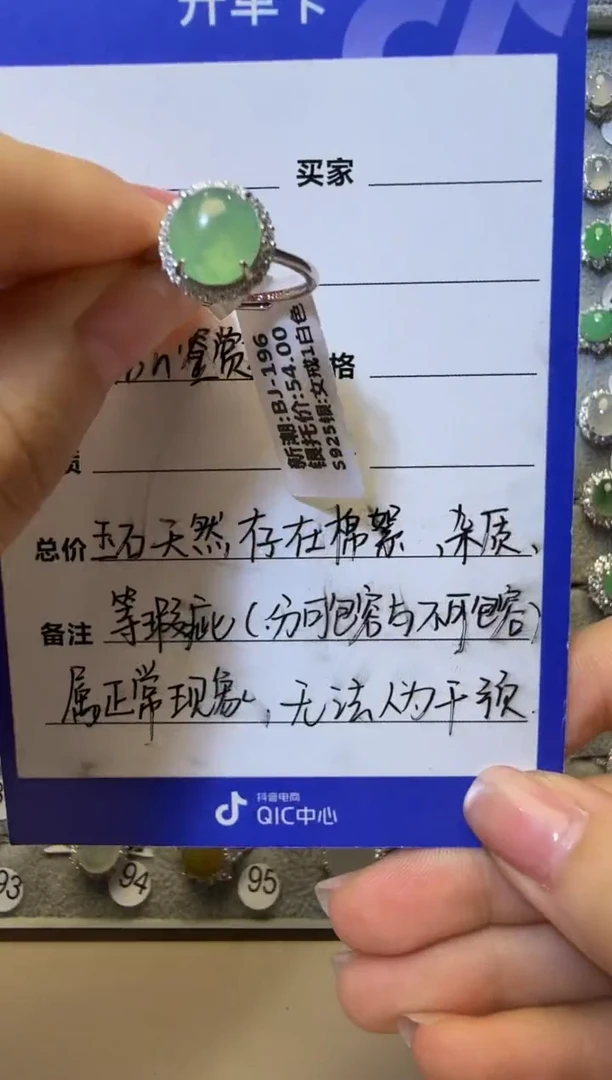 开单卡
买家
鉴赏
格
新潮:BJ-196
银托价:54.00
S925银:女戒1白色
总价 玉石天然,存在棉絮、杂质、
备注 等瑕疵(分可包容与不可包容)
属正常现象,无法人为干预.
抖音电商
QIC中心
93
94
95